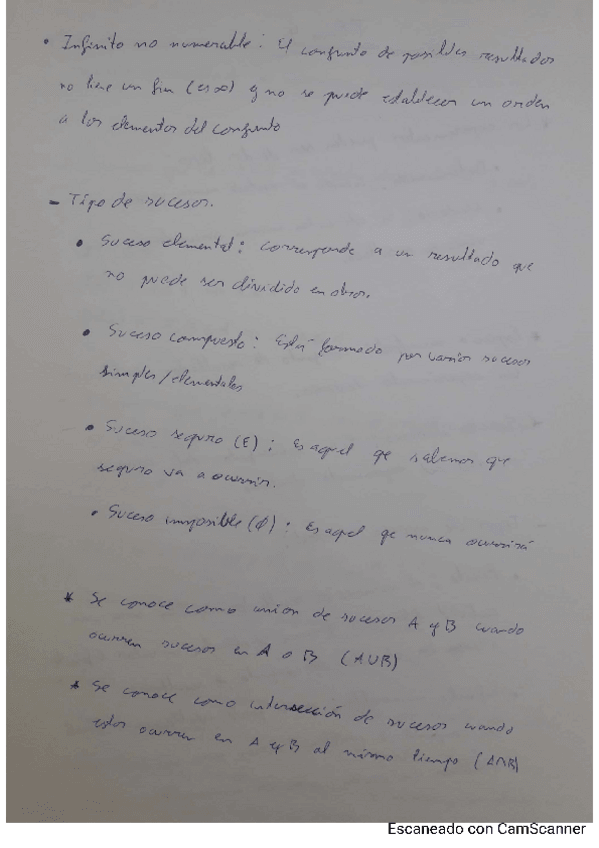 • Infinito no numerable: El conjunto de posibles resultados
no tiene un fin (es ∞) y no se puede establecer un orden
a los elementos del conjunto
- Tipo de sucesos.
• Suceso elemental: corresponde a un resultado que
no puede ser dividido en otros.
• Suceso compuesto: Está formado por varios sucesos
simples/elementales
• Suceso seguro (E): Es aquel qe sabemos que
seguro va a ocurrir.
• Suceso imposible (Ø): Es aquel qe nunca ocurrirá
* Se conoce como unión de sucesos A y B cuando
ocurren sucesos en A o B (AUB)
* Se conoce como intersección de sucesos cuando
estos ocurren en A y B al mismo tiempo (A∩B)
Escaneado con CamScanner